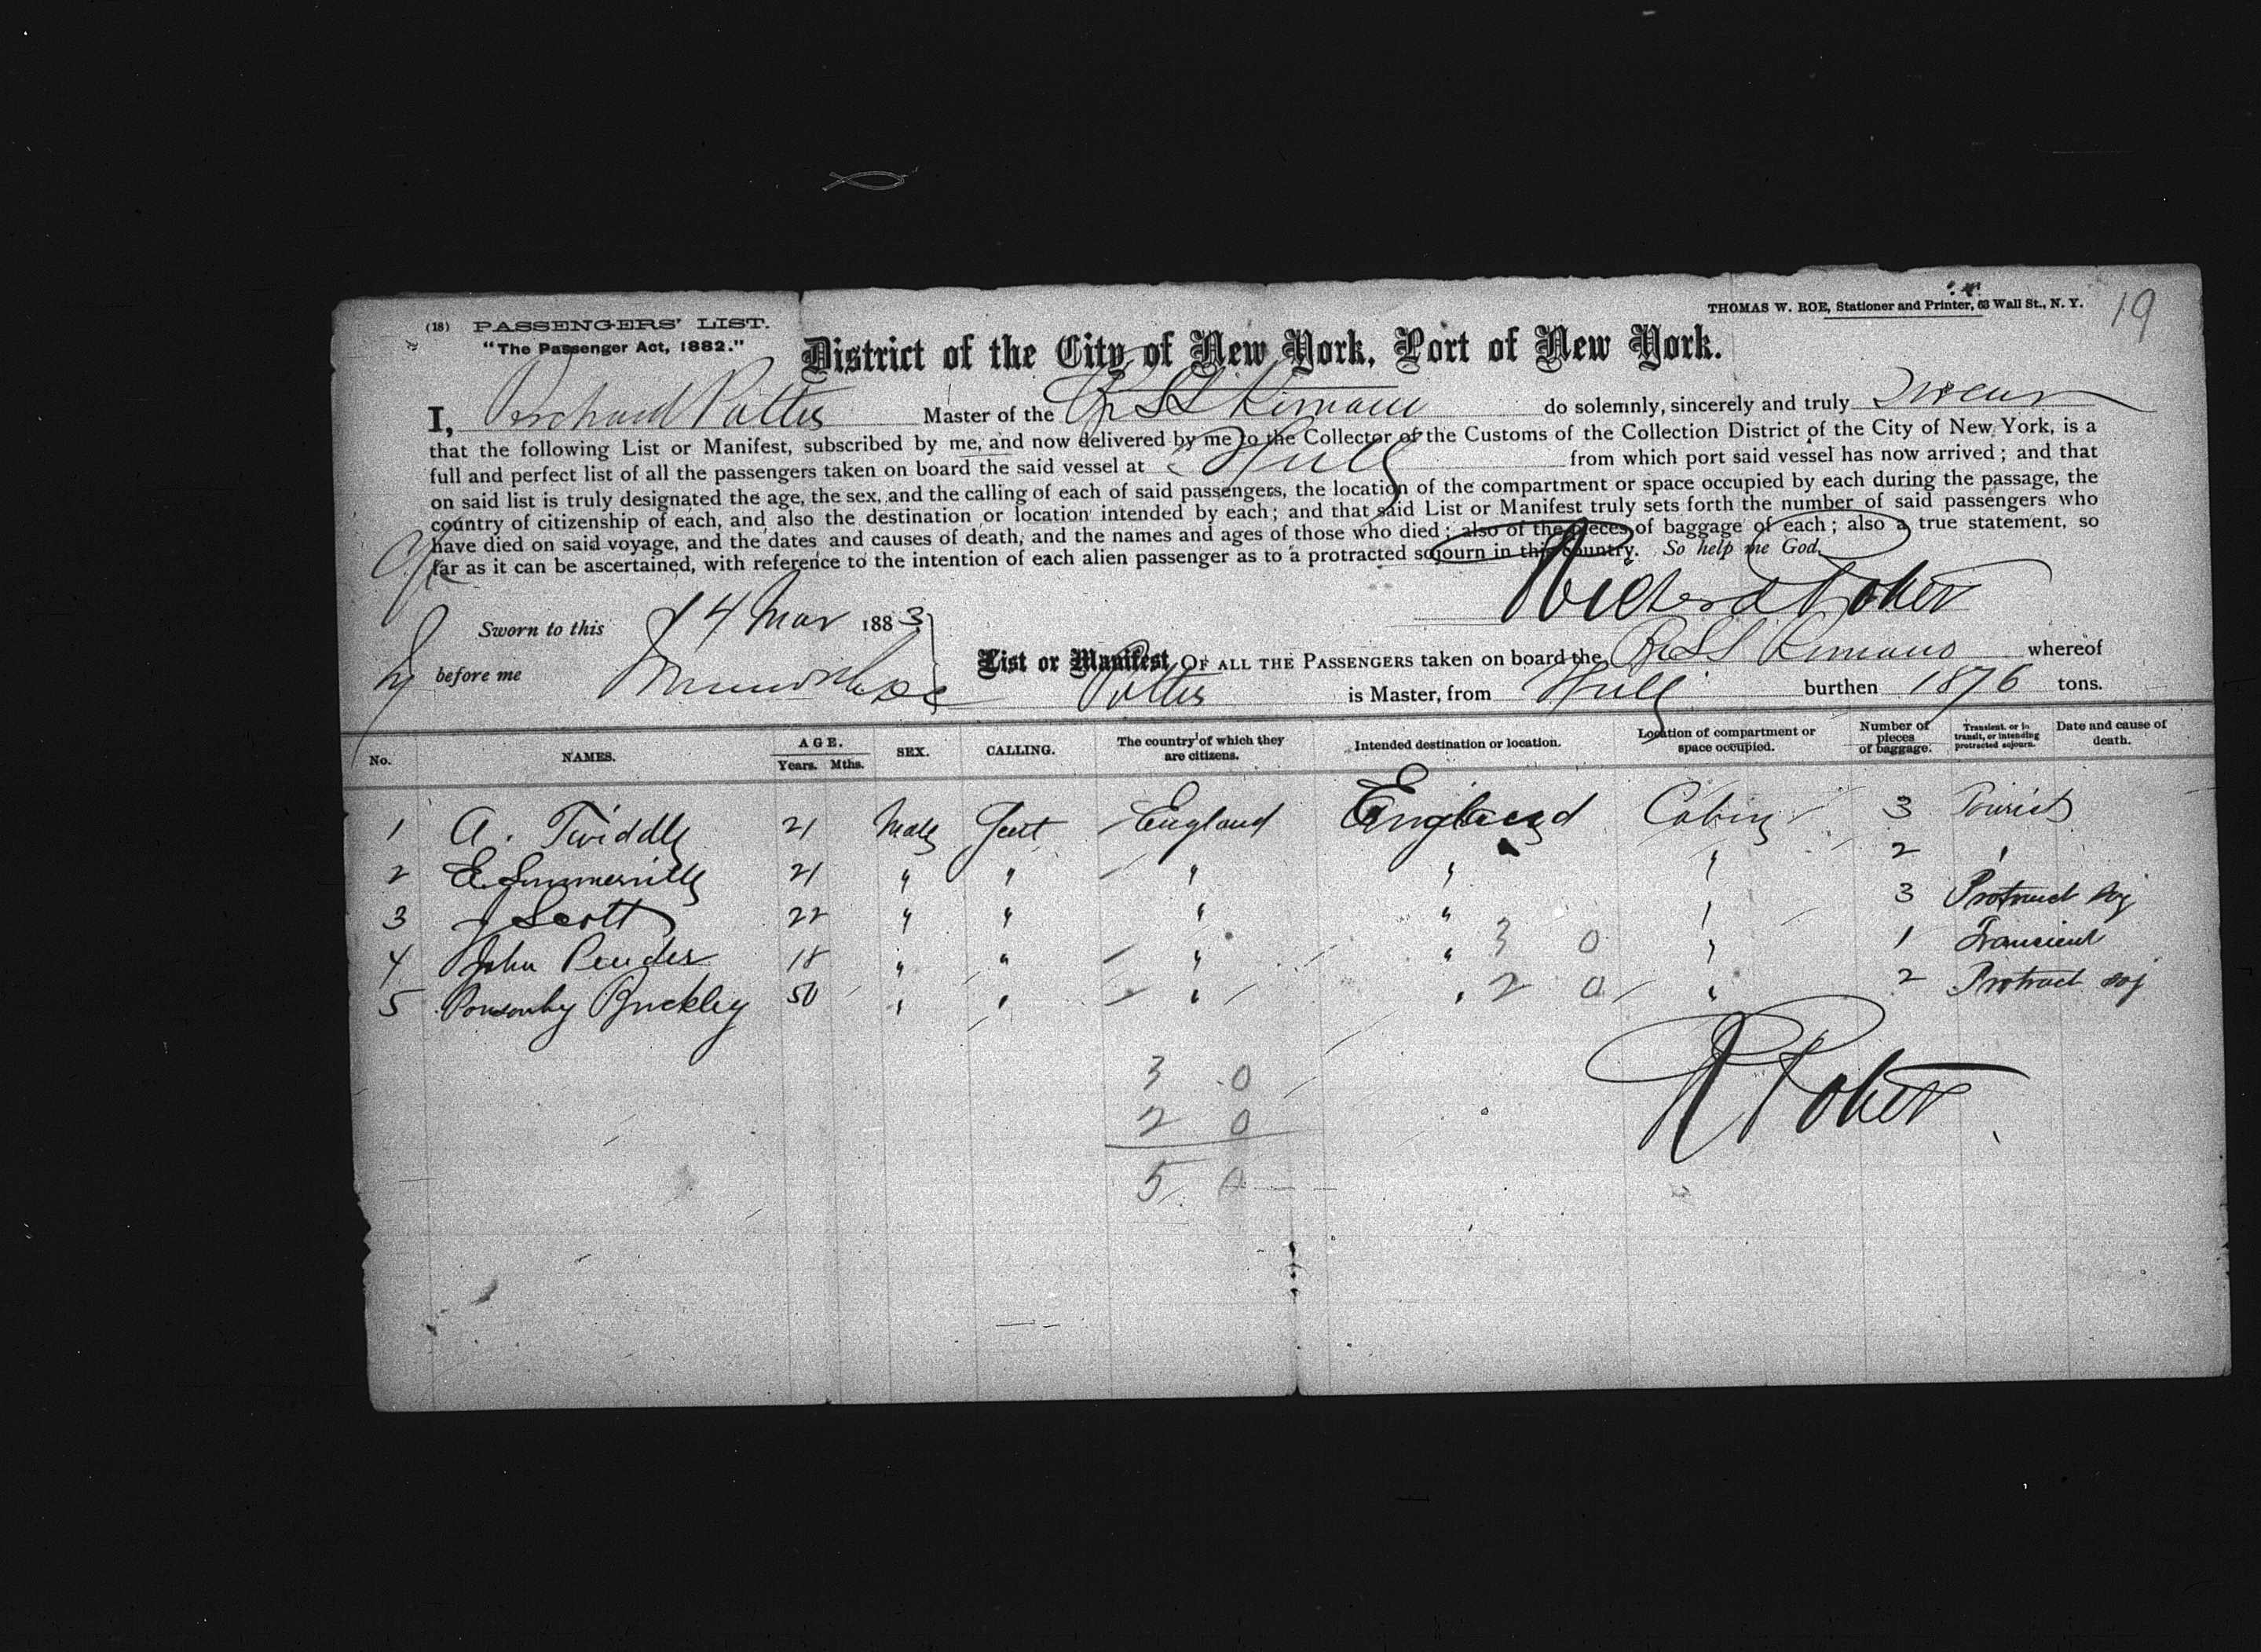 THOMAS W. ROE, Stationer and Printer, 63 Wall St., N. Y.
19
(18) PASSENGERS' LIST.
"The Passenger Act, 1882."
District of the City of New York, Port of New York.
I, Richard Potter Master of the Br SS Romano do solemnly, sincerely and truly swear
that the following List or Manifest, subscribed by me, and now delivered by me to the Collector of the Customs of the Collection District of the City of New York, is a
full and perfect list of all the passengers taken on board the said vessel at Hull from which port said vessel has now arrived; and that
on said list is truly designated the age, the sex, and the calling of each of said passengers, the location of the compartment or space occupied by each during the passage, the
country of citizenship of each, and also the destination or location intended by each; and that said List or Manifest truly sets forth the number of said passengers who
have died on said voyage, and the dates and causes of death, and the names and ages of those who died; also of the pieces of baggage of each; also a true statement, so
far as it can be ascertained, with reference to the intention of each alien passenger as to a protracted sojourn in this country. So help me God.
Sworn to this 14 Mar 1883
before me
List or Manifest OF ALL THE PASSENGERS taken on board the Br SS Romano whereof
Potter is Master, from Hull burthen 1876 tons.
No. NAMES. AGE. Years. Mths. SEX. CALLING. The country of which they are citizens. Intended destination or location. Location of compartment or space occupied. Number of pieces of baggage. Transient, or in transit, or intending protracted sojourn. Date and cause of death.
1 A. Twiddle 21 Male Gent England England Cabin 3 Tourist
2 E. Summerville 21 " " " " " 2 "
3 J Scott 22 " " " " " 3 Protract soj
4 John Pender 18 " " " " 3 0 " 1 Transient
5 Ponsonby Buckley 50 " " " " 2 0 " 2 Protract soj
3 0
2 0
5 0
R Potter